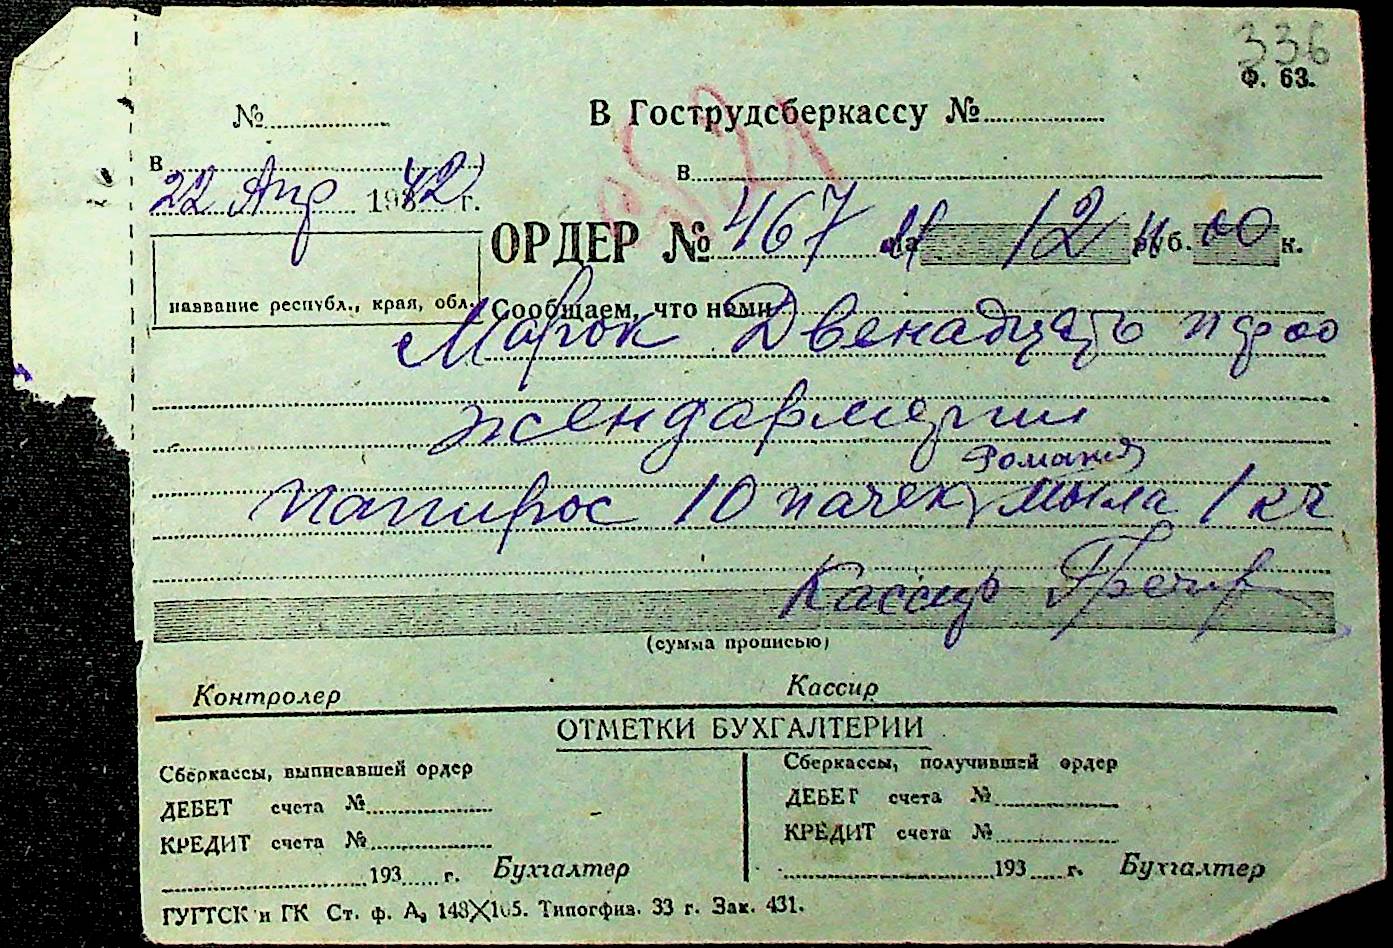 336
Ф. 63.
№ В Гострудсберкассу №
в в
22 Апр 1942 г.
ОРДЕР № 467 на 12 руб. 00 к.
название республ., края, обл. Сообщаем, что нами
Марок Двенадцать п ф 00
жендармерии
Романия
папирос 10 пачек, мыла 1 кг
Кассир
(сумма прописью)
Контролер Кассир
ОТМЕТКИ БУХГАЛТЕРИИ
Сберкассы, выписавшей ордер Сберкассы, получившей ордер
ДЕБЕТ счета № ДЕБЕТ счета №
КРЕДИТ счета № КРЕДИТ счета №
193 г. Бухгалтер 193 г. Бухгалтер
ГУГТСК и ГК Ст. ф. А, 148X105. Типогфиз. 33 г. Зак. 431.